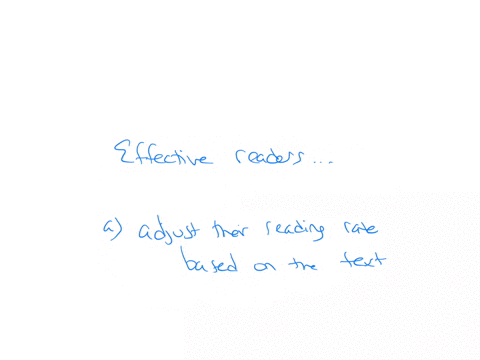 Effective readers...
a) adjust their reading rate
based on the text